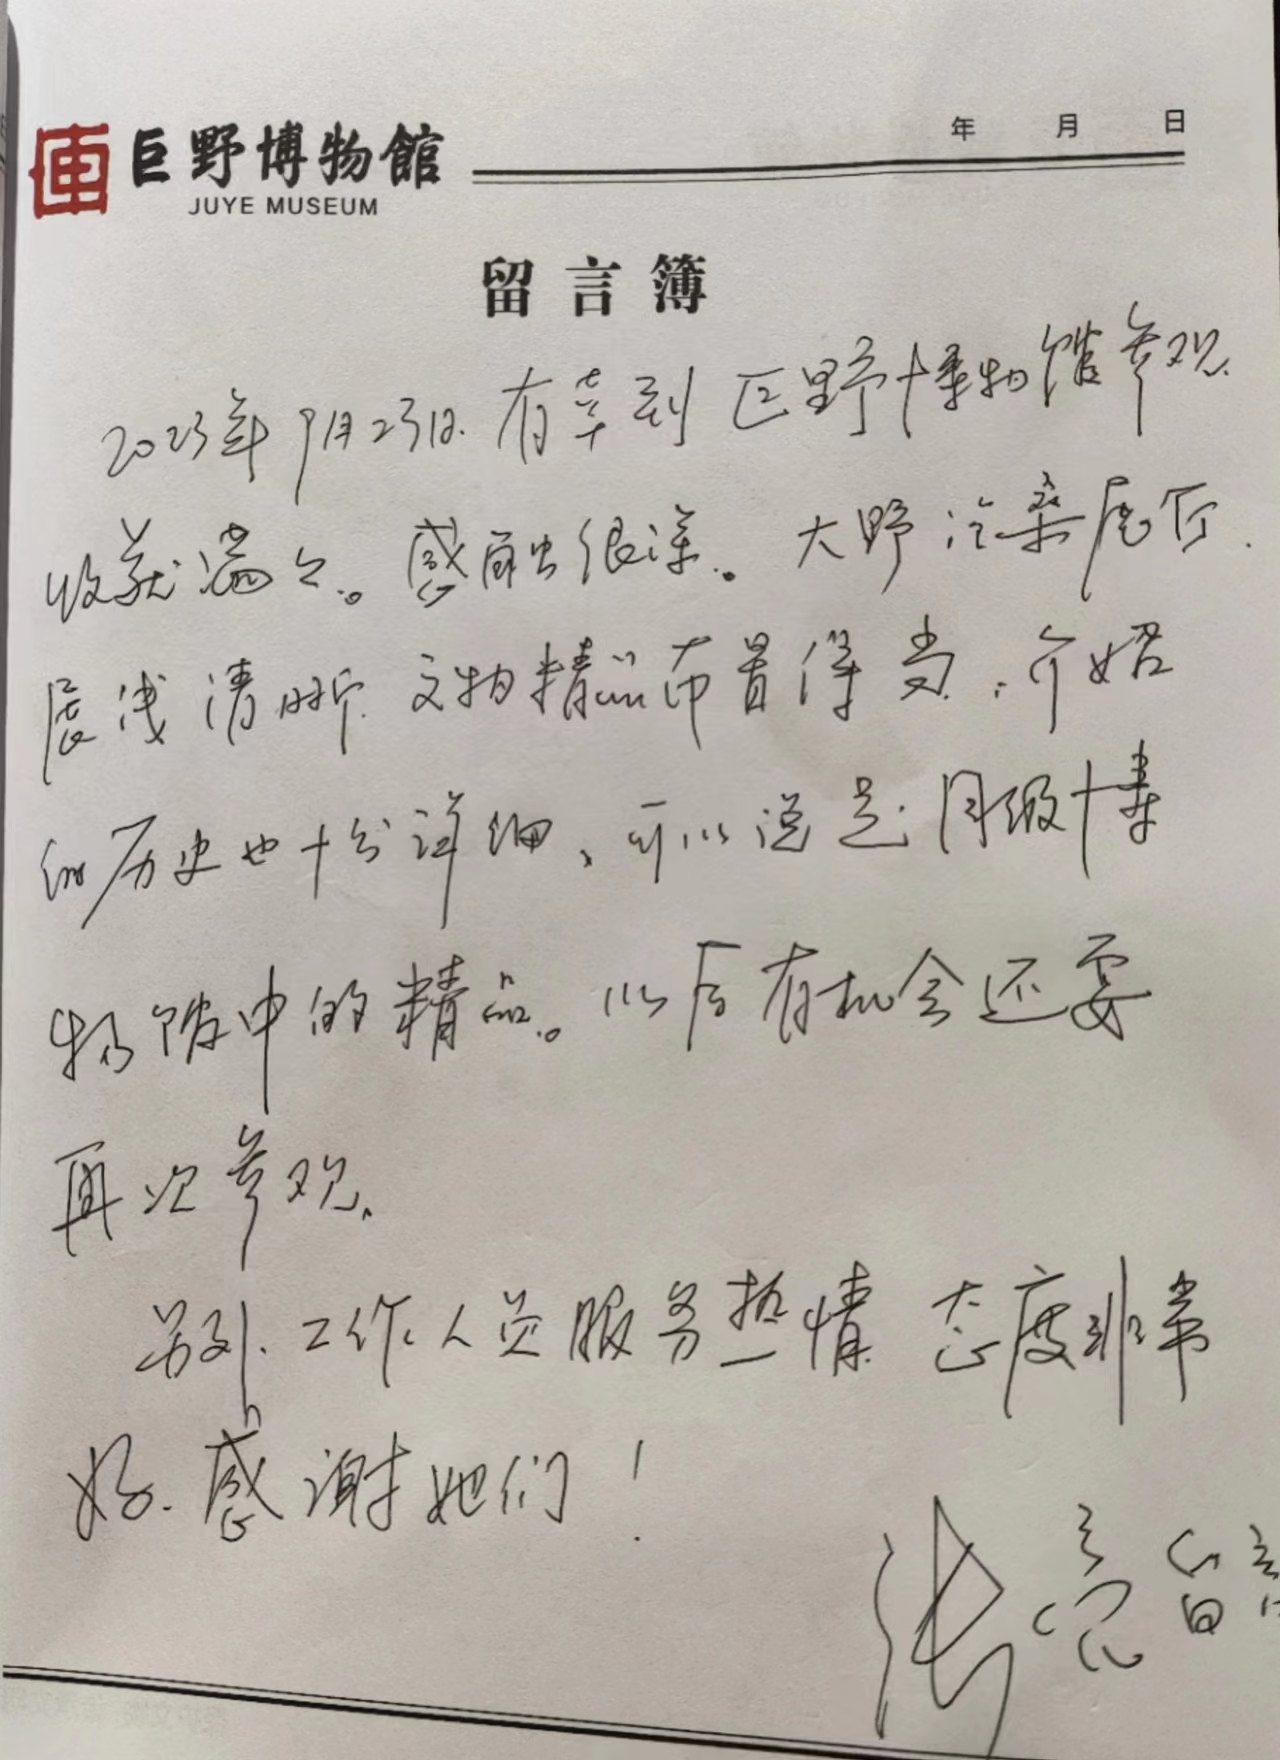 年 月 日
巨野博物館
JUYE MUSEUM
留言簿
2023年9月23日.有幸到巨野博物馆参观.
收获满之。感触很深。大野沧桑展厅.
展线清晰.文物精品布置得当.介绍
的历史也十分详细、可以说是同级博
物馆中的精品。以后有机会还要
再次参观、
另外.工作人员服务热情 态度非常
好.感谢她们！
张亮 留言